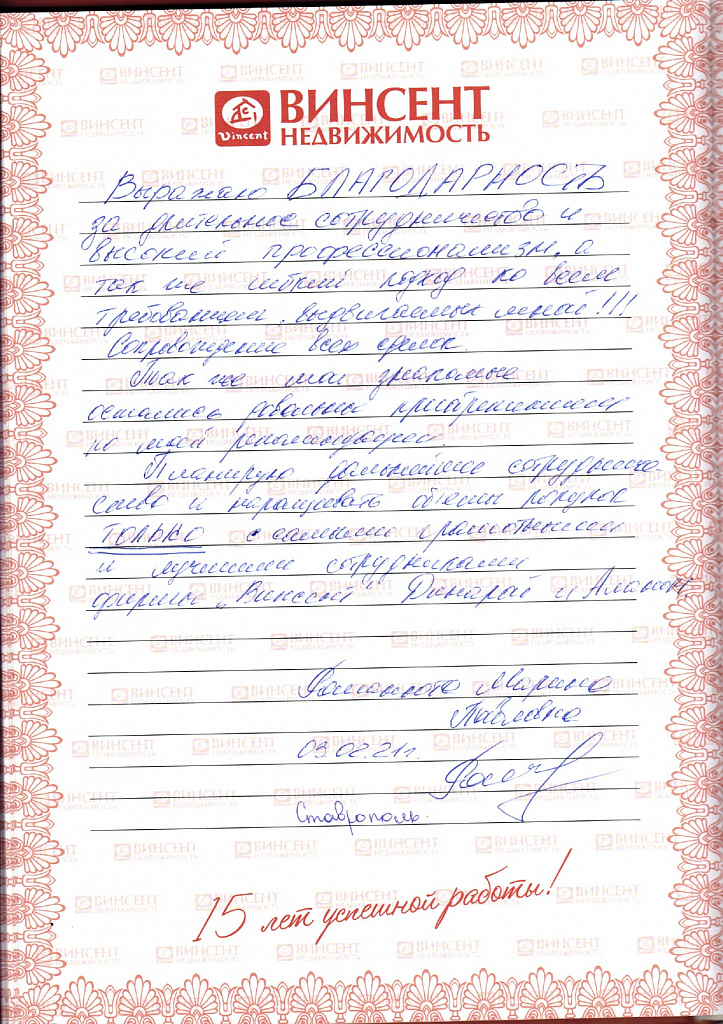 Vincent
ВИНСЕНТ
НЕДВИЖИМОСТЬ
Выражаю БЛАГОДАРНОСТЬ
за длительное сотрудничество и
высокий профессионализм, а
так же гибкий подход ко всем
требованиям, выдвигаемых мной!!!
Сопровождение всех сделок.
Так же мои знакомые
остались довольны приобретением
по моей рекомендации
Планирую дальнейшее сотрудниче-
ство и наращивать объемы покупок
ТОЛЬКО с самыми грамотными
и лучшими сотрудниками
фирмы „Винсент" Динарой и
Марина
Павловна
03.02.21г.
Ставрополь.
15 лет успешной работы!